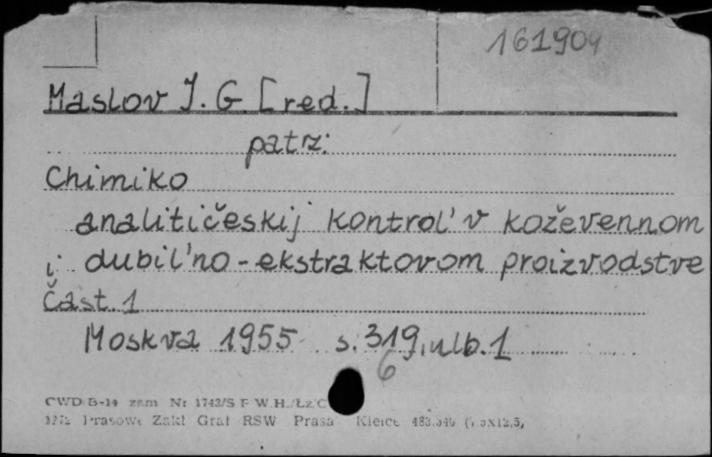 161904
Maslov J. G [red.]
patrz:
Chimiko
analitičeskij kontrol' v koževennom
i dubil'no-ekstraktovom proizvodstve
Čast. 1
Moskva 1955 s. 319, ulb. 1
6
CWD B-14 zam Nr 1742/S F W.H./Łz/C
Prasowe Zakł Graf RSW Prasa Kielce